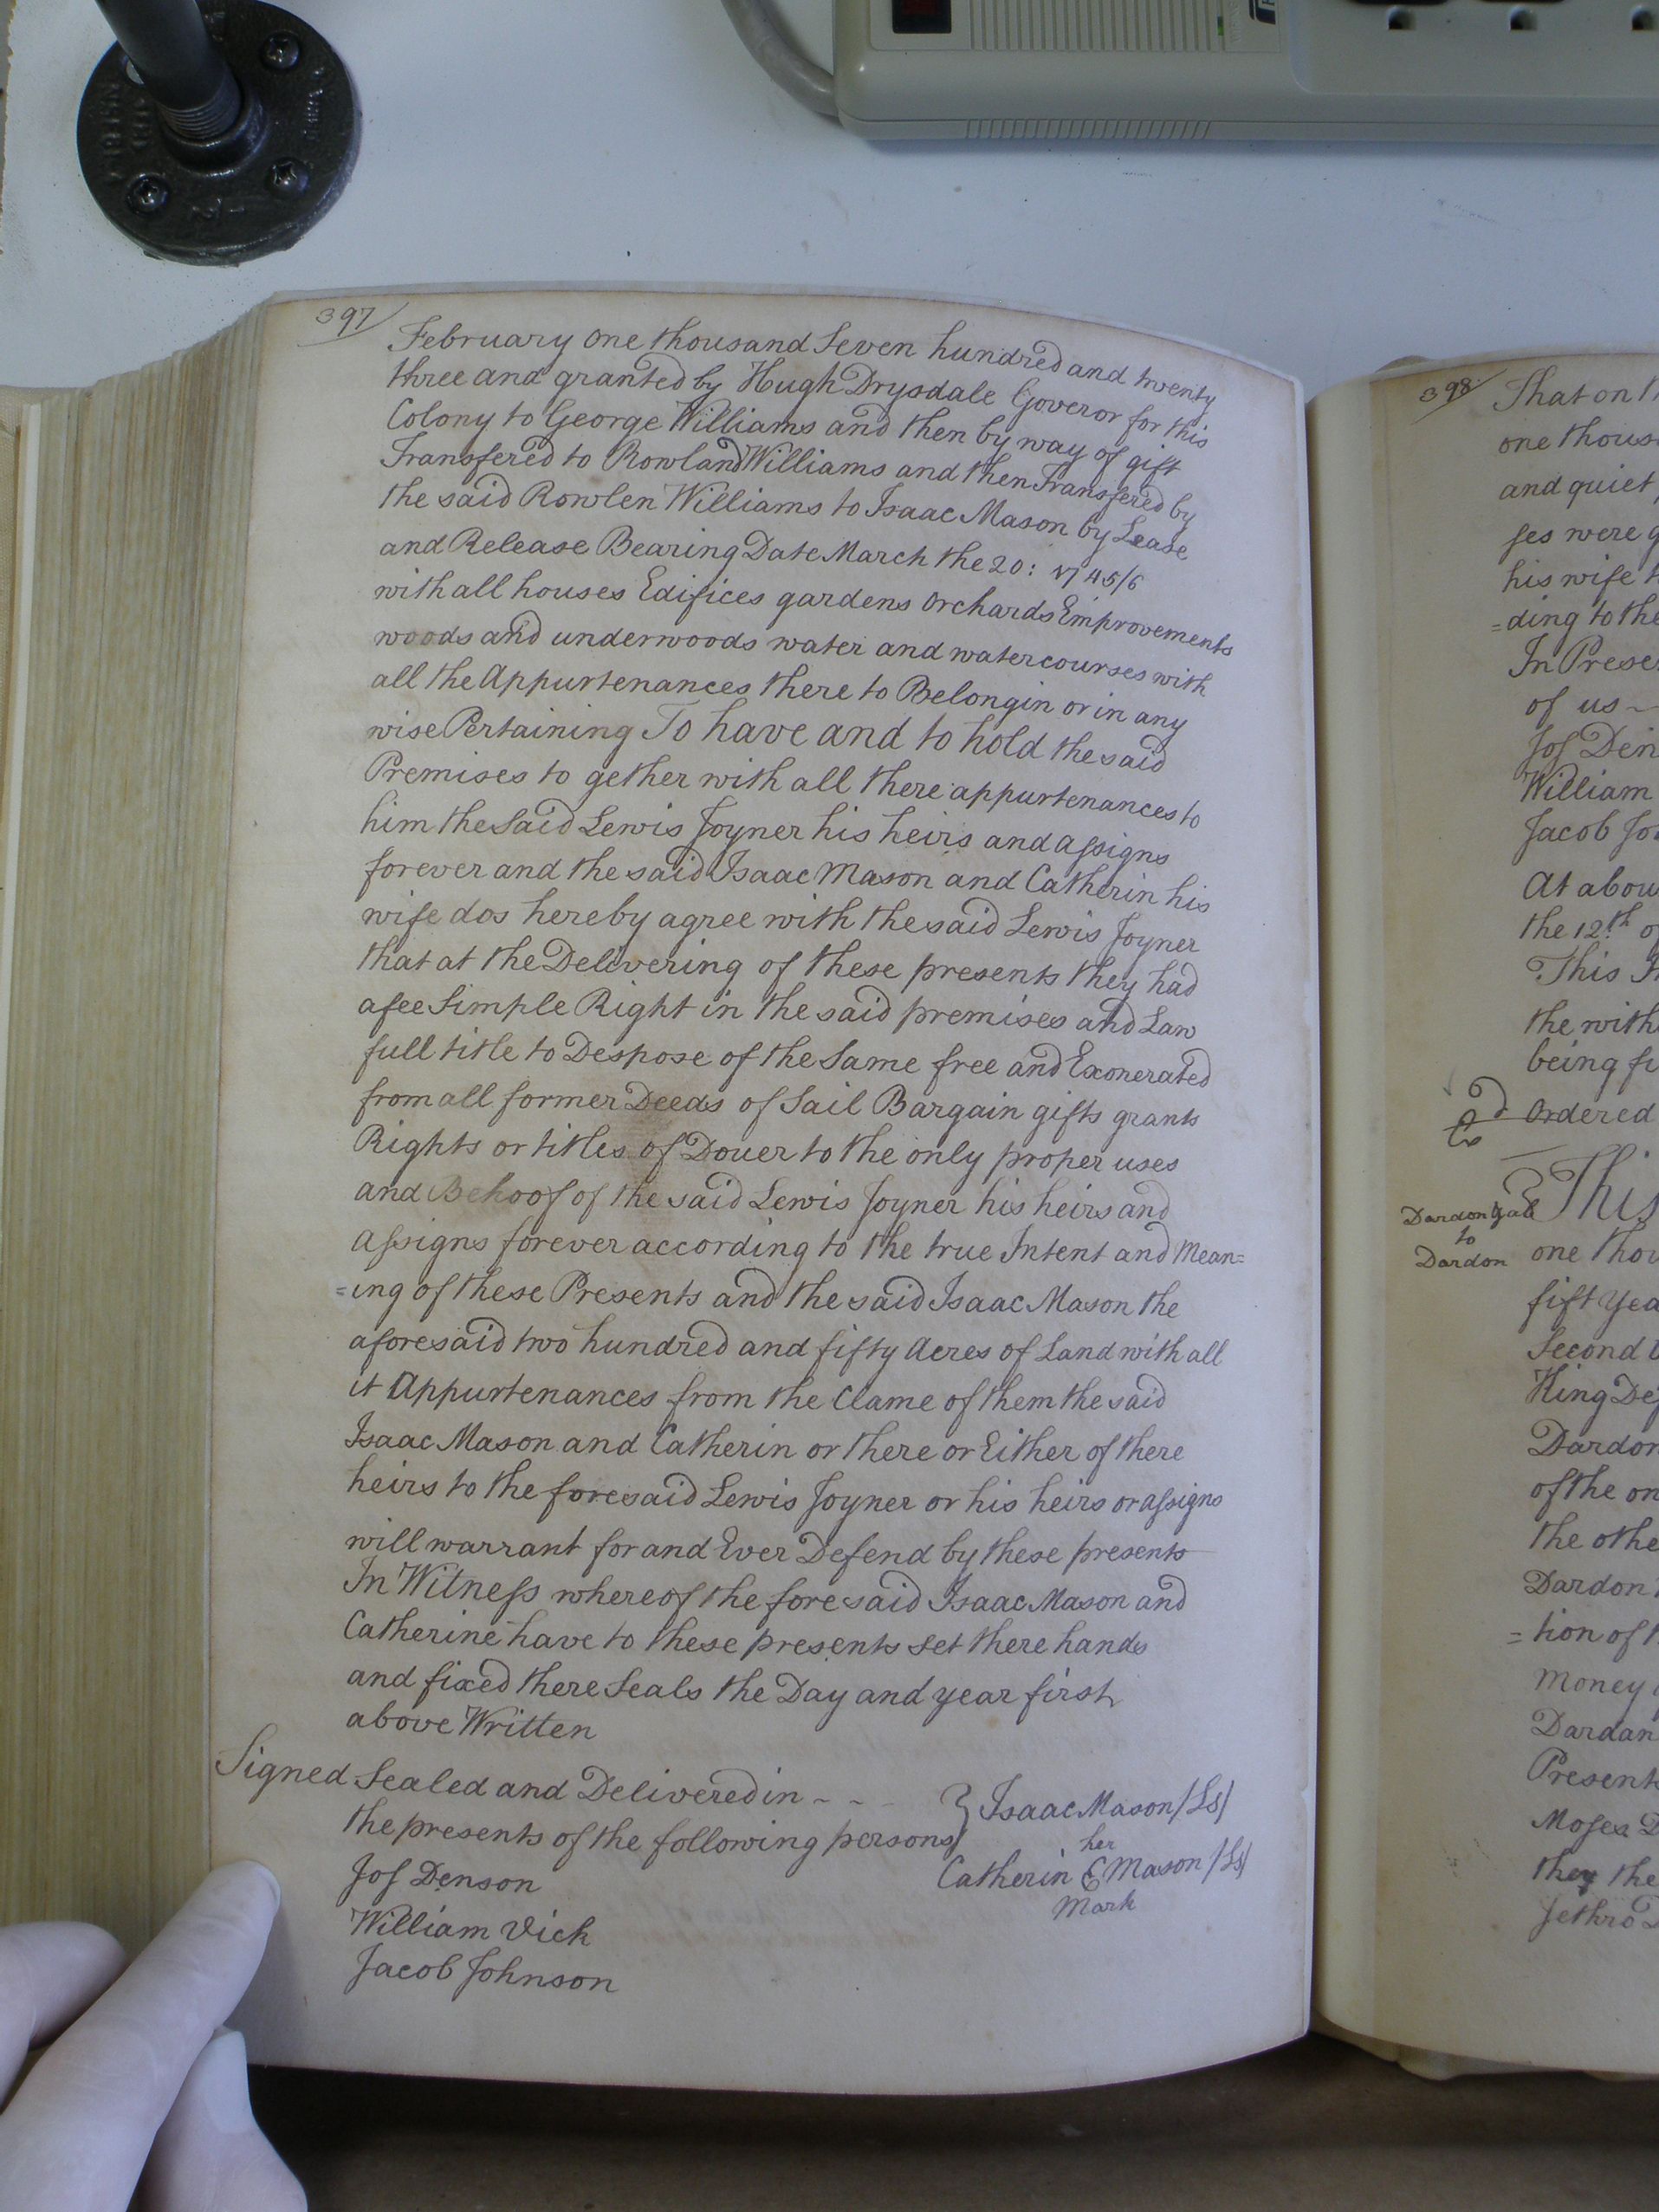 397
February one thousand Seven hundred and twenty
three and granted by Hugh Drysdale Goveror for this
Colony to George Williams and then by way of gift
Transfered to Rowland Williams and then Transfered by
the said Rowlen Williams to Isaac Mason by Lease
and Release Bearing Date March the 20: 1745/6
with all houses Edifices gardens Orchards Emprovements
woods and underwoods water and watercourses with
all the Appurtenances there to Belongin or in any
wise Pertaining To have and to hold the said
Premises to gether with all there appurtenances to
him the Said Lewis Joyner his heirs and assigns
forever and the said Isaac Mason and Catherin his
wife dos hereby agree with the said Lewis Joyner
that at the Delivering of these presents they had
a fee Simple Right in the said premises and Law
full title to Despose of the Same free and Exonerated
from all former Deeds of Sail Bargain gifts grants
Rights or titles of Douer to the only proper uses
and Behoof of the said Lewis Joyner his heirs and
assigns forever according to the true Intent and Mean=
=ing of these Presents and the said Isaac Mason the
aforesaid two hundred and fifty Acres of Land with all
it Appurtenances from the Clame of them the said
Isaac Mason and Catherin or there or Either of there
heirs to the foresaid Lewis Joyner or his heirs or assigns
will warrant for and Ever Defend by these presents
In Witness whereof the fore said Isaac Mason and
Catherine have to these presents set there hands
and fixed there Seals the Day and year first
above Written
Signed Sealed and Delivered in - - -
the presents of the following persons } Isaac Mason /Ls/
Jos Denson
William Vick
Jacob Johnson
her
Catherin E Mason /Ls/
Mark
398
That on
one thous
and quiet
ses were
his wife
=ding to the
In Prese
of us ~
Jos Den
William
Jacob Jo
At abou
the 12th
This
the with
being
Ordered
This
Dardon
to
Dardon
one tho
fift Yea
Second
King De
Dardon
of the on
the othe
Dardon
=tion of
Money
Dardan
Present
Moses D
they the
Jethro D